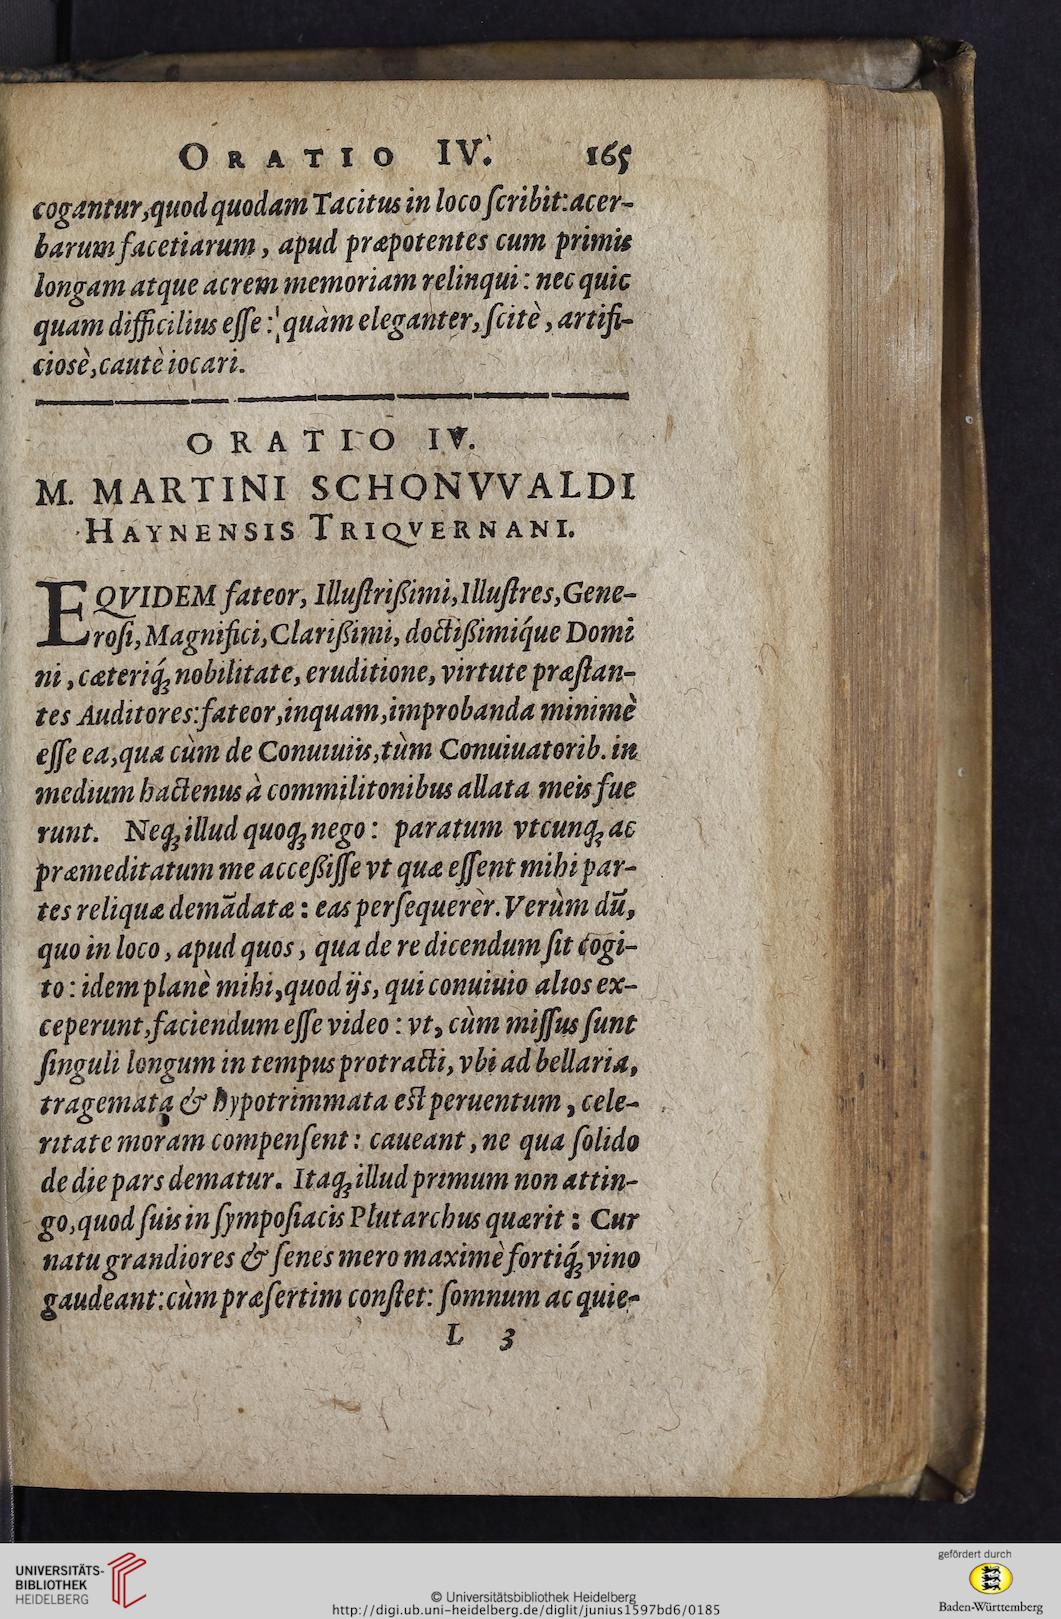 ORATIO IV. 165
cogantur,quod quodam Tacitus in loco ſcribit:acer-
barum facetiarum, apud præpotentes cum primis
longam atque acrem memoriam relinqui: nec quic
quam difficilius eſſe: quàm eleganter, ſcitè, artifi-
ciosè,cautè iocari.
ORATIO IV.
M. MARTINI SCHONVVALDI
HAYNENSIS TRIQVERNANI.
EQVIDEM fateor, Illuſtrißimi,Illuſtres,Gene-
roſi,Magnifici,Clarißimi, doctißimiq́ue Domi
ni, cæteriq́ꝫ nobilitate, eruditione, virtute præſtan-
tes Auditores:fateor,inquam,improbanda minimè
eſſe ea,quæ cùm de Conuiuiis,tùm Conuiuatorib. in
medium hactenus à commilitonibus allata meis fue
runt. Neqꝫ illud quoqꝫ nego: paratum vtcunqꝫ ac
præmeditatum me acceßiſſe vt quæ eſſent mihi par-
tes reliquæ demãdatæ: eas perſequerèr. Verùm dũ,
quo in loco, apud quos, qua de re dicendum ſit cogi-
to: idem planè mihi,quod ijs, qui conuiuio alios ex-
ceperunt,faciendum eſſe video: vt, cùm miſſus ſunt
ſinguli longum in tempus protracti, vbi ad bellaria,
tragemata & hypotrimmata eſt peruentum, cele-
ritate moram compenſent: caueant, ne qua ſolido
de die pars dematur. Itaqꝫ illud primum non attin-
go,quod ſuis in ſympoſiacis Plutarchus quærit: Cur
natu grandiores & ſenes mero maximè fortiq́ꝫ vino
gaudeant:cùm præſertim conſtet: ſomnum ac quie-
L 3
UNIVERSITÄTS-
BIBLIOTHEK
HEIDELBERG
© Universitätsbibliothek Heidelberg
http://digi.ub.uni-heidelberg.de/diglit/junius1597bd6/0185
gefördert durch
Baden-Württemberg